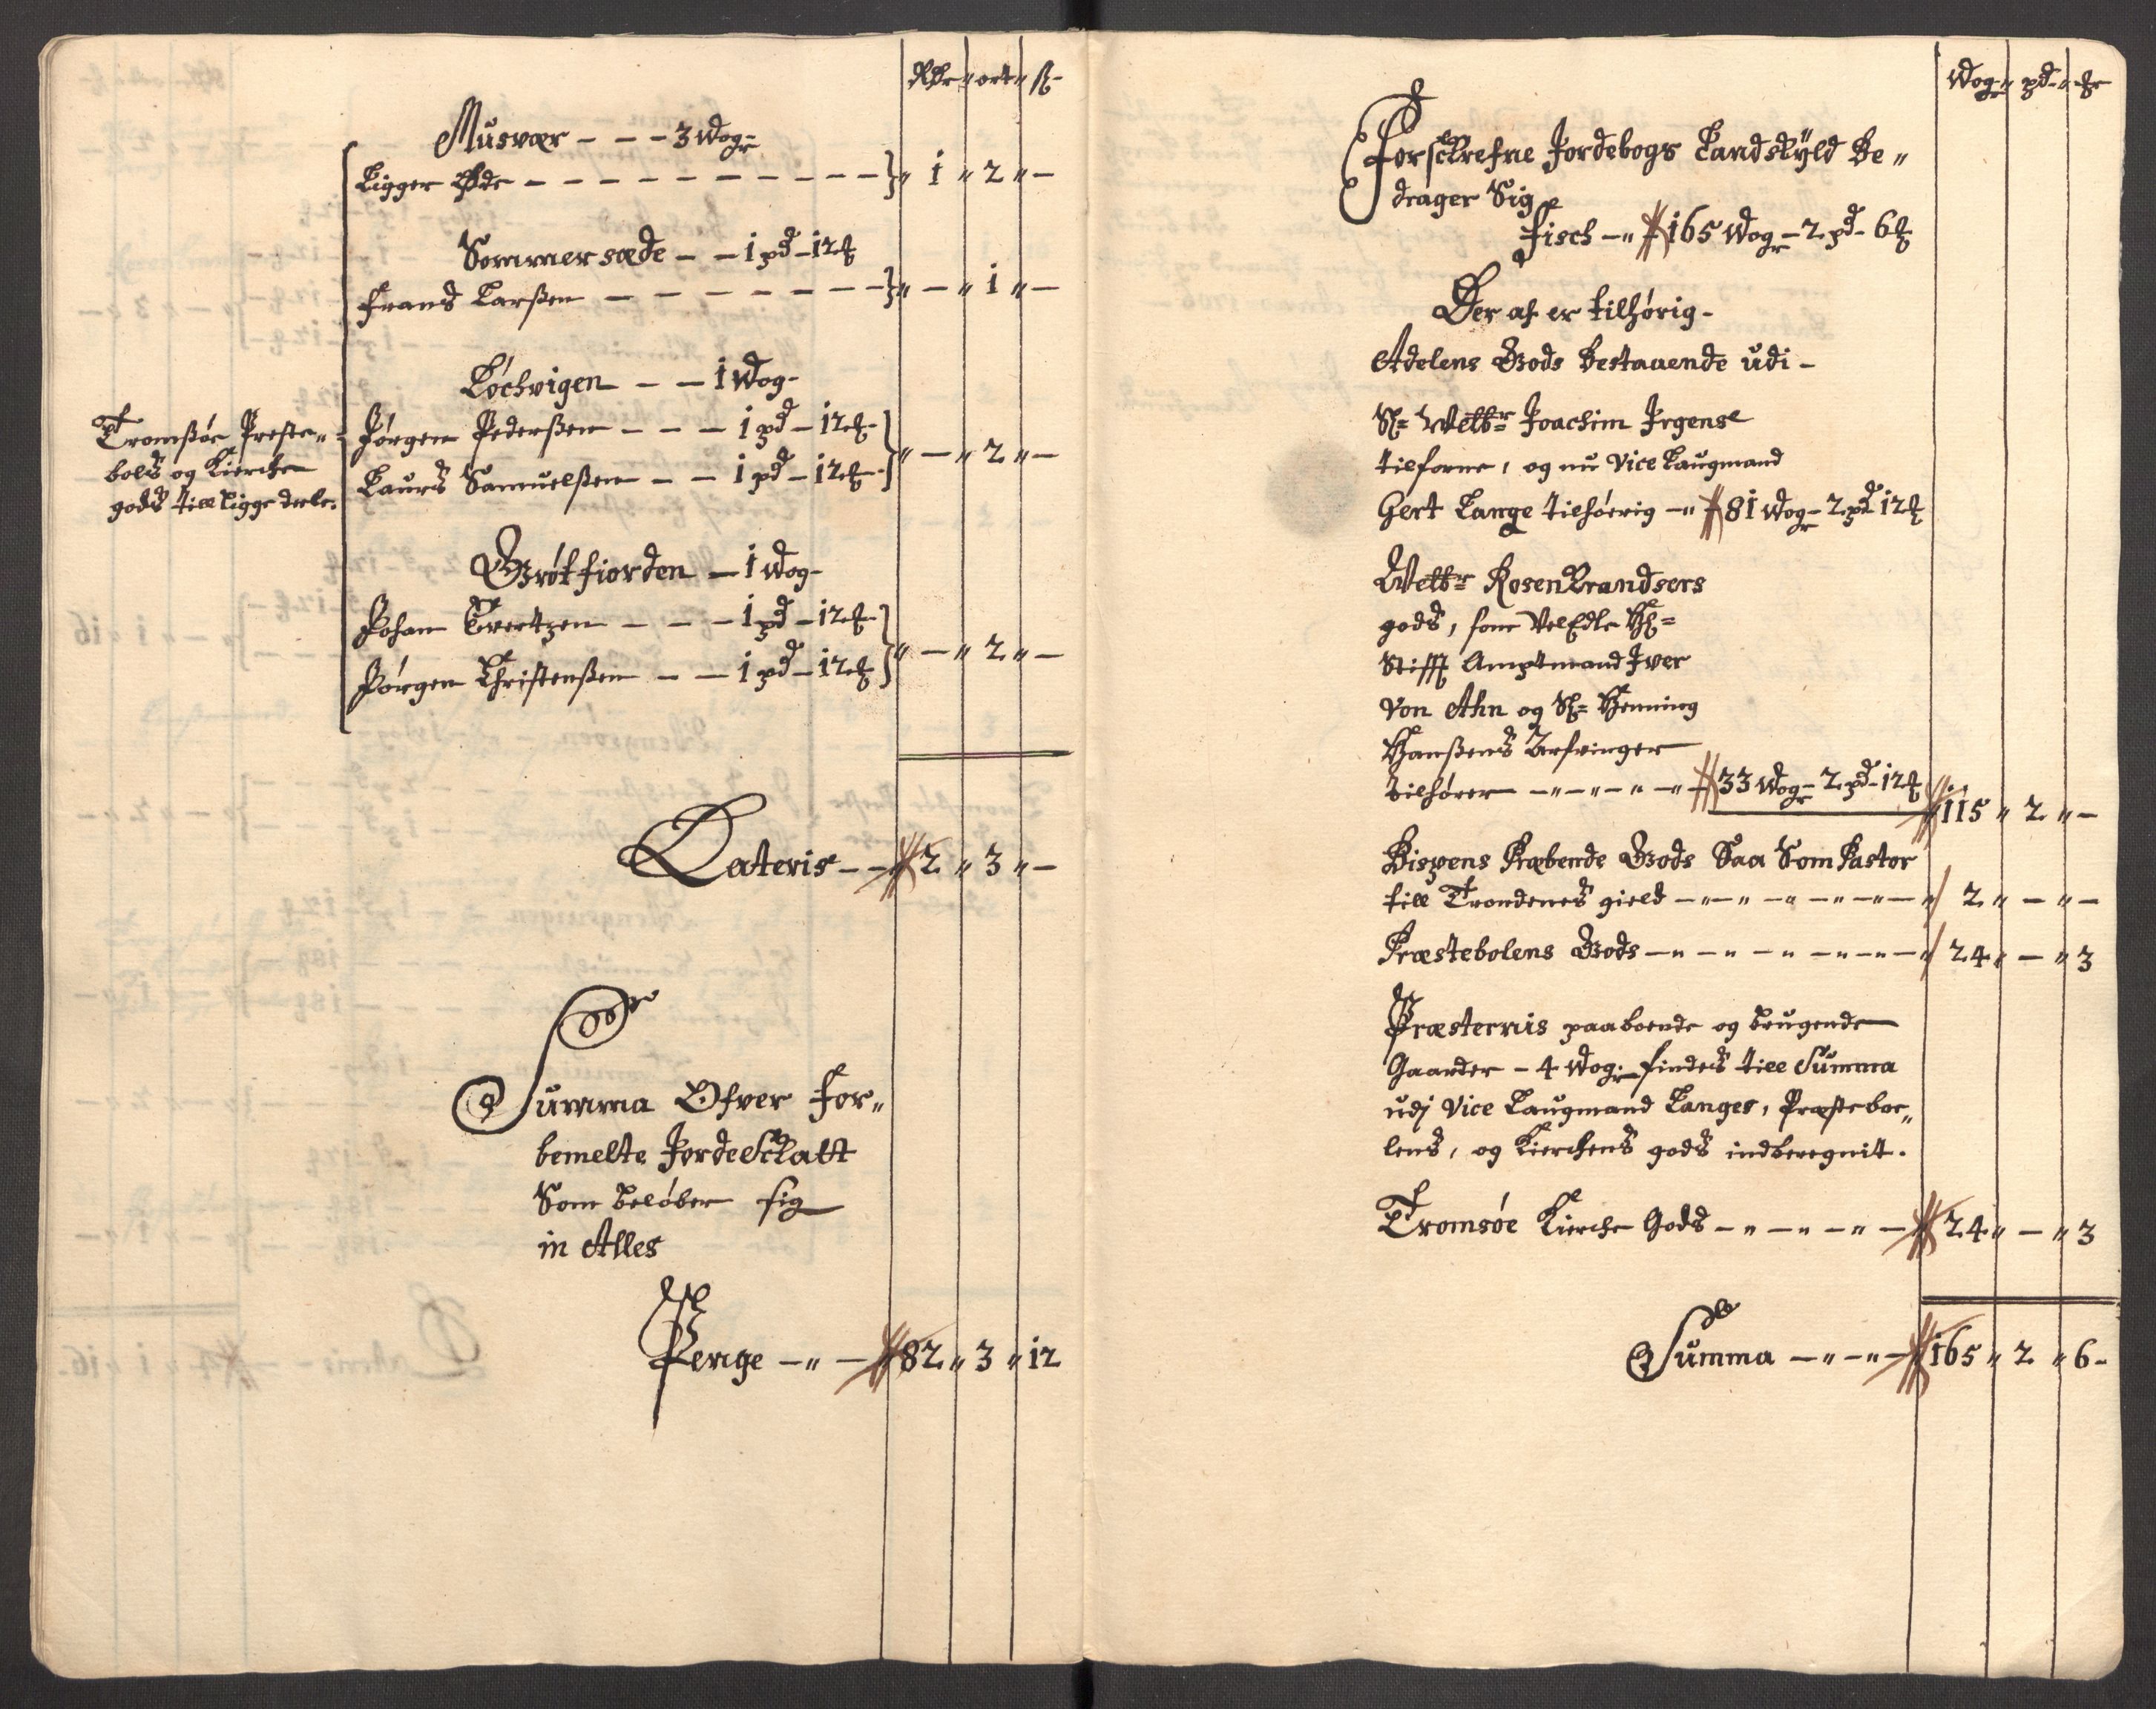 Rdr " ort " ß
Musvær - - - 3 Wogr
Ligger Øde - - - - - - - - - - - " 1 " 2 " -
Sommersæde - - 1 pd - 12 ℔
Frands Larßen - - - - - - - - " - " 1 " -
Løchvigen - - 1 Wog-
Tromßøe Preste-
bols og Kierche
gods till ligge deele.
Jørgen Pederßen - - - 1 pd - 12 ℔
Laurs Samuelßen - - 1 pd - 12 ℔ " - " 2 " -
Grøtfiorden - 1 Wog-
Johan Evertzen - - - 1 pd - 12 ℔
Jørgen Christenßen - - 1 pd - 12 ℔ " - " 2 " -
Lateris - - 2 " 3 " -
Summa Ofver For"
bemelte JordeSckatt
Som beløber sig
in Alles
Penge - " - 82 " 3 " 12
Wogr " pd " ℔r
Forsckrefne Jordebogs Landskyld Be"
drager Sig
fisch - " 165 Wogr - 2 pd - 6 ℔
Der af er tilhørig -
Adelens Gods bestaaende udi -
Sl= Welbr Joachim Irgens
tilforne, og nu Vice Laugmand
Gert Lange tilhøerig - " 81 Wogr - 2 pd 12 ℔
Welbr RosenKrandsers
gods, som VelEdle Hr=
Stifft Amptmand Iver
Von Ahn og Sl= Henning
Hanßens Arfvinger
tilhører - " - " - " - " - 33 Wogr - 2 pd - 12 ℔ 115 " 2 " -
Bispens Præbende Gods Saa Som Pastor
till Trondenes gield - " - " - " - " - " - " 2 " - " -
Præstebolens Gods - " - " - " - " - " - " 24 " - " 3
Præsternis paaboende og brugende
Gaarder - 4 Wogr findes till Summa
udj Vice Laugmand Langes, Præsteboe"
lens, og Kierchens gods indberegnit.
Tromsøe Kierche Gods - " - " - " - 24 " - " 3
Summa - " - " - 165 " 2 " 6 -